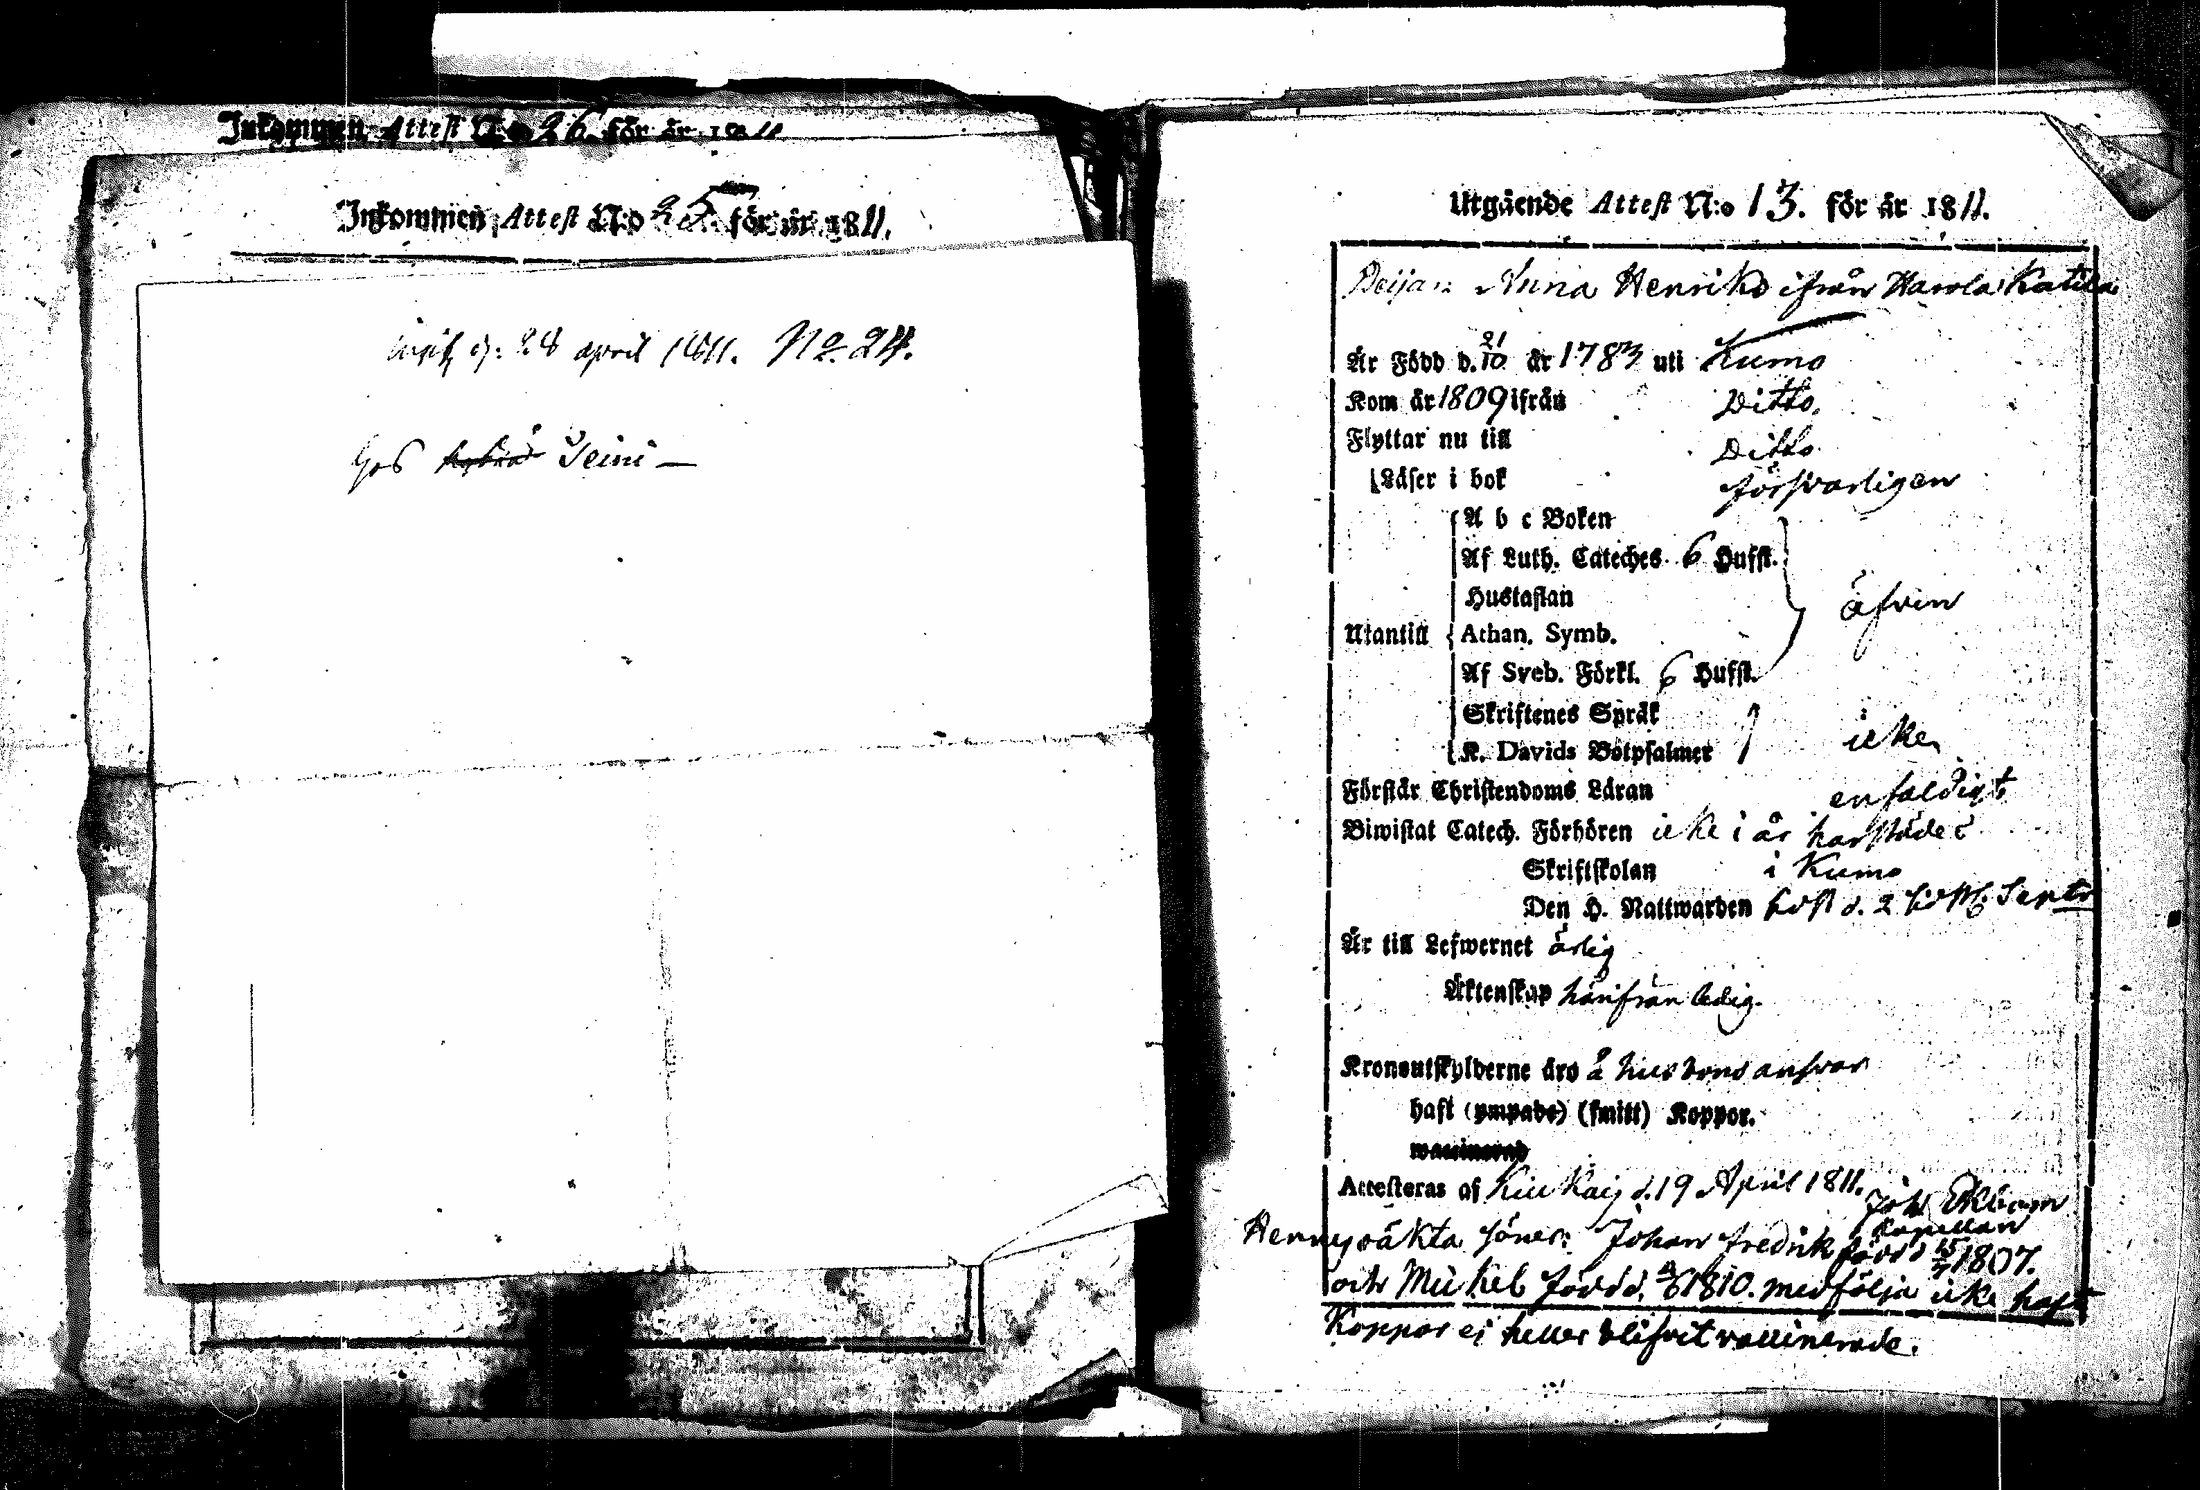 Inkommen Attest N:o 26. för år 1811
Inkommen Attest N:o 25. för år 1811.
d: 28 april 1811. No. 24.
hos Seini —
Utgående Attest N:o 13. för år 1811.
Peijan Anna Henriks ifrån Harola Katila
Är Född d. 21/10 år 1783 uti Kumo
Kom år 1809 ifrån Ditto.
Flyttar nu till Ditto
Läser i bok försvarligen
A b c Boken
Af Luth. Cateches. 6 Hufst.
Hustaflan
äfven
Utantill Athan. Symb.
Af Sveb. Förkl. 6 Hufst.
Skriftenes Språk
K. Davids Botpsalmer icke
Förstår Christendoms Läran enfaldigt
Biwistat Catech. Förhören icke i år
Skriftskolan i Kumo
Den H. Nattwarden d. 2
Är till Lefwernet ärlig
Äktenskap härifrån ledig.
Kronoutskylderne äro å husbonds ansvar
haft (ympade) (smitt) Koppor.
waccinerad
Attesteras af Kiukais d. 19 April 1811. Joh Ekbom
Kapellan
Hennes oäkta söner: Johan Fredrik född d 15/7 1807.
och Mickel född d. 4/6 1810. medfölja icke haft
Koppor ej heller blifvit vaccinerade.